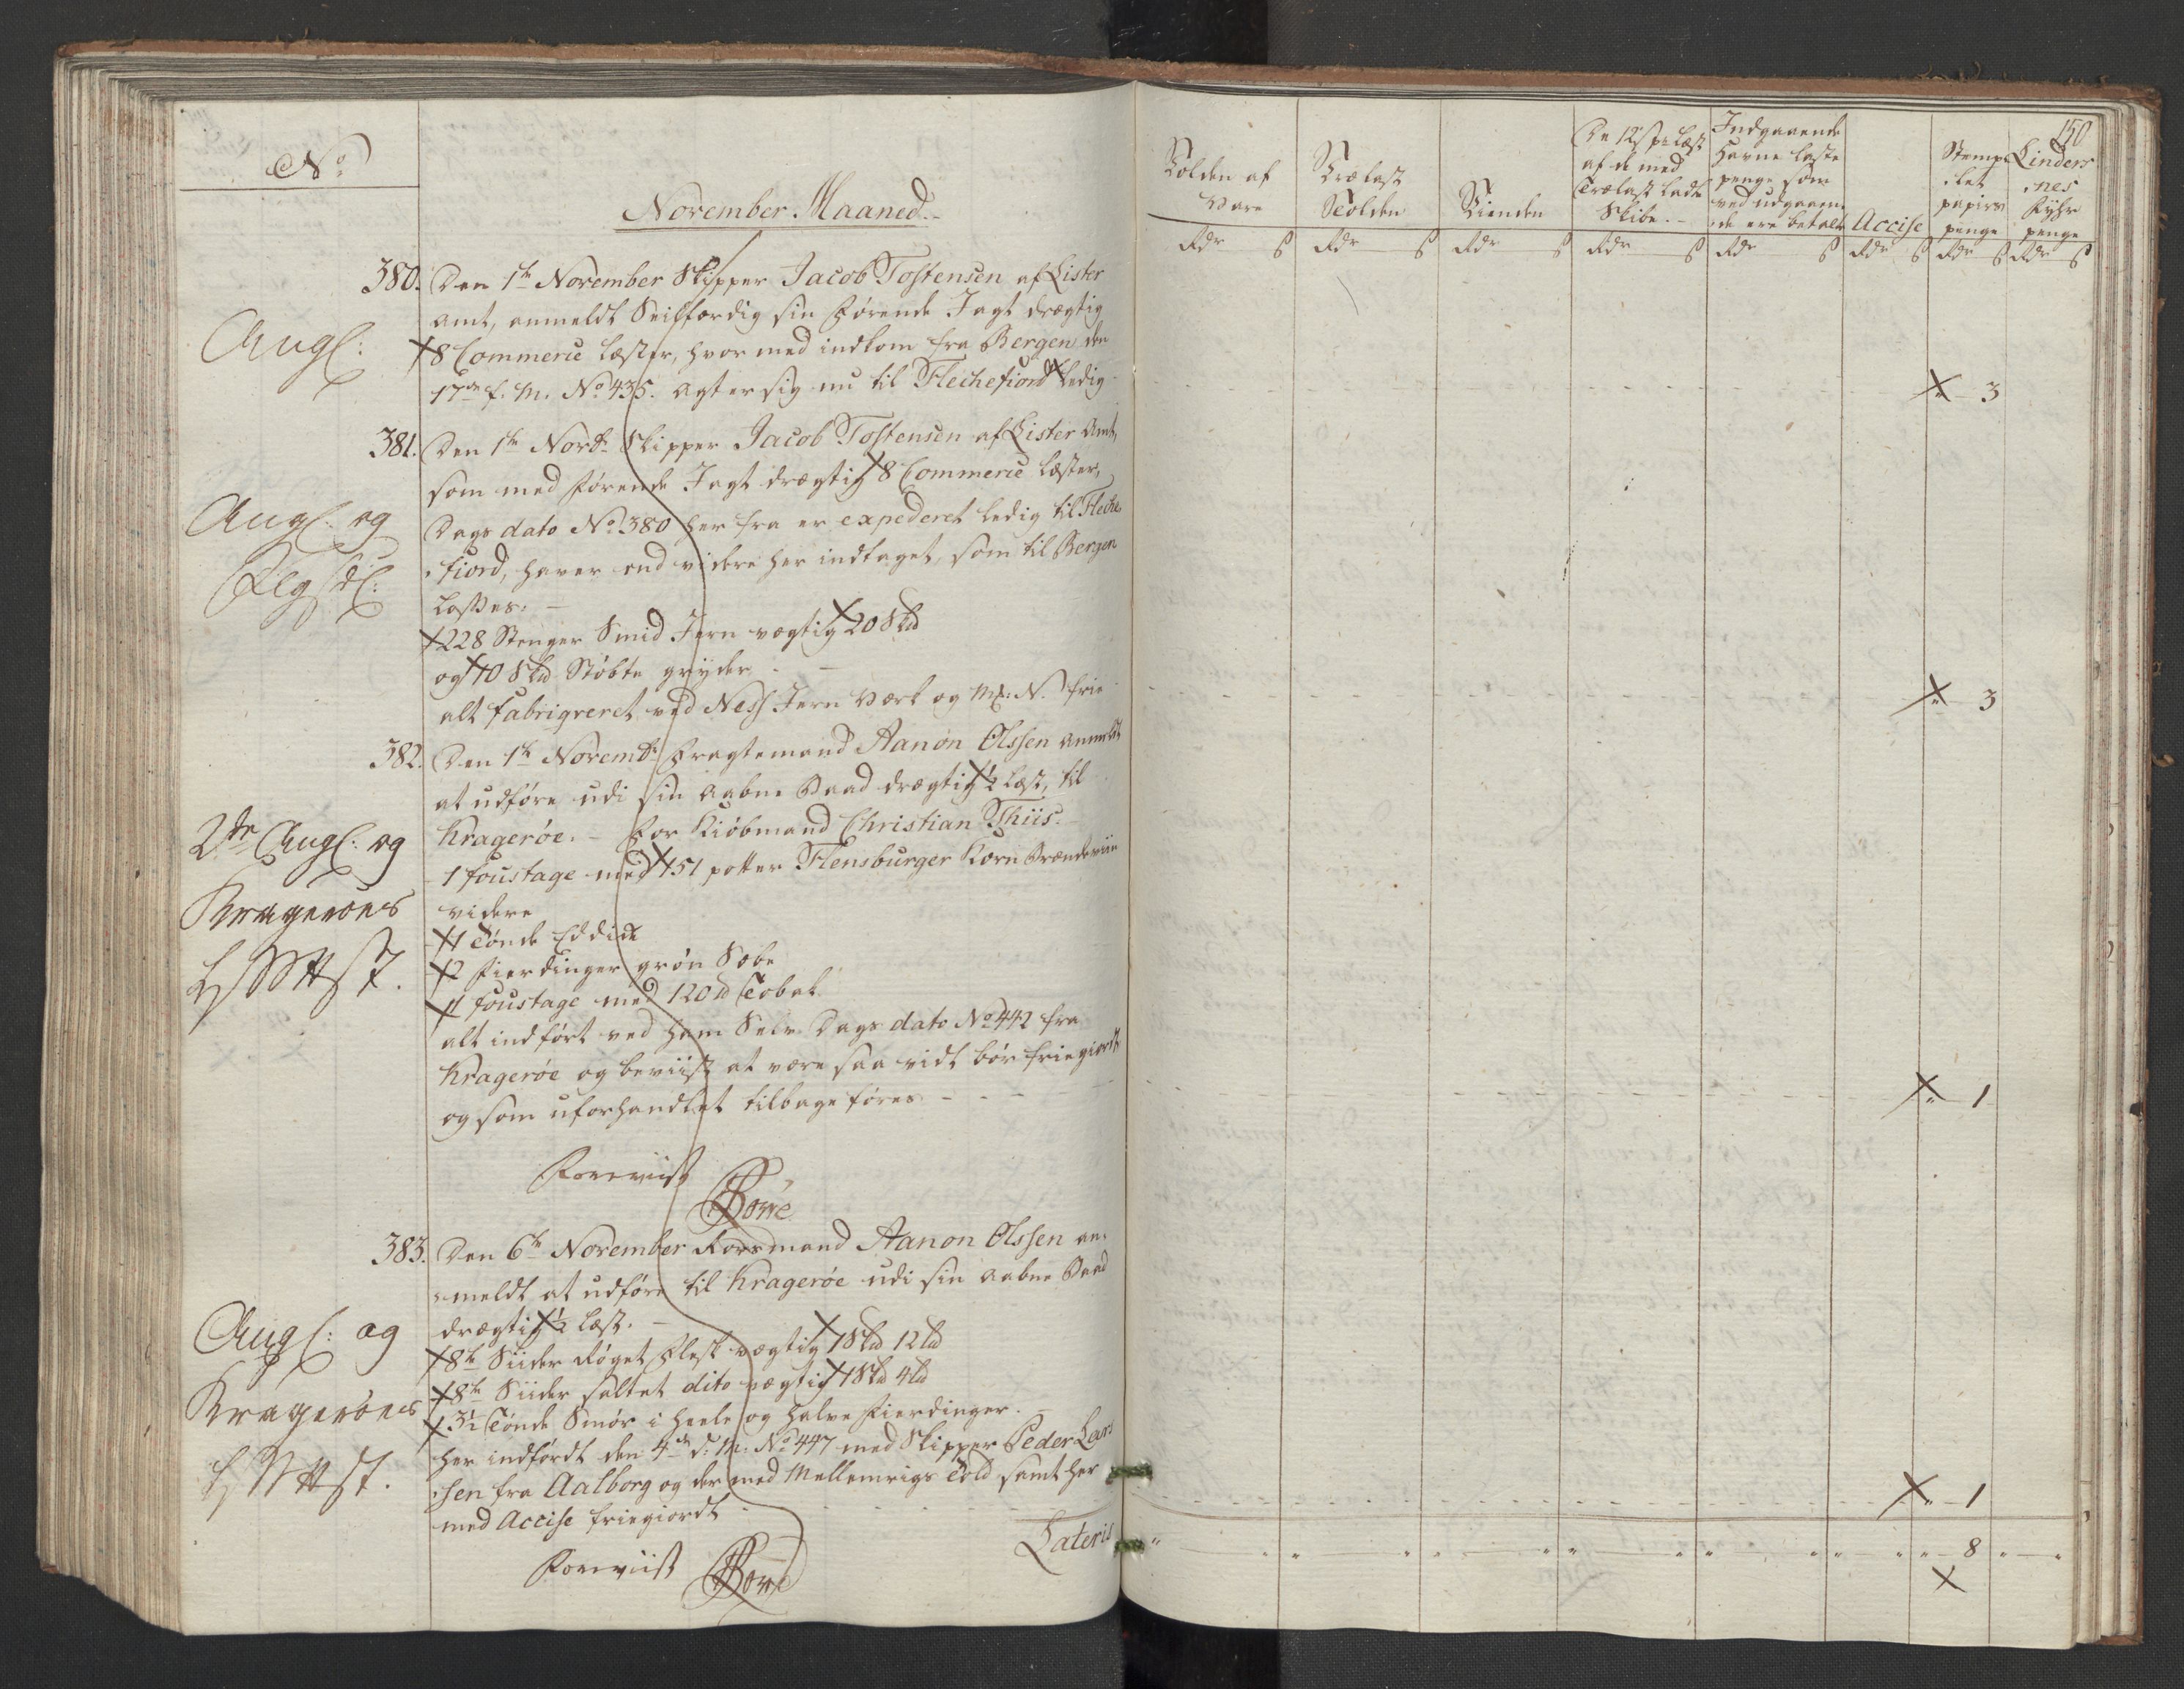 No
November Maaned.
380. Den 1te November Skipper Jacob Tostensen af Lister
Amt, anmeldt Seilfærdig sin førende Jagt drægtig
Angl:
8 Commerce læster, hvor med indkom fra Bergen den
17de f. M. No 435. agter sig nu til Flechefiord ledig
381. Den 1te Novbr Skipper Jacob Tostensen af Lister Amt,
som med førende Jagt drægtig 8 Commerce læster,
Angl: og
Dags dato No 380 her fra er expederet ledig til Fleche
fiord, haver end videre her indtaget, som til Bergen
losses.
228 Stenger Smid Jern vegtig 20 Skd
og 10 Skd Støbte gryder
alt fabrigveret ved Ness Jern Værk og frie
382. Den 1te Novembr Fragtemand Aanon Olssen anmeldt
at udføre udi sin aabne Baad drægtig 1/2 læst, til
2de Angl: og
Kragerøe. For Kiøbmand Christian Thiis.
1 foustage med 151 potter Flensburger Korn Brændeviin
Kragerøes
videre
1 Tønde Eddike
2 fierdinger grøn Sæbe
1 foustage med 120 ℔ Tobak
alt indført ved ham Selv Dags dato No 442 fra
Kragerøe og beviist at være saa vidt bør friegiordt
og som uforhandlet tilbage føres
Foreviist
Borre
383. Den 6te November Rorsmand Aanon Olssen an-
meldt at udføre til Kragerøe udi sin aabne Baad
Angl: og
drægtig 1/2 læst.
8te Siider Røget Flesk vegtig 1 Skd 12 ld
8te Siider saltet dito vegtig 1 Skd 4 ld
Kragerøes
3 1/2 Tønde Smør i heele og halve fierdinger.
her indførdt den 4de d: M: No 447 med Skipper Peder Lar
sen fra Aalborg og der med Mellemrigs Told samt her
med Accise friegiordt
Lateris
Foreviist Borre
150
Tolden af
Vare
Trælast
Tolden
Tienden
De 12 s pr læst
af de med
Trælast ladte
Skibe.
Indgaaende
Havne laste
penge som
ved udgaaen-
de ere betalt
Accise
Stemp-
let
papirs
penge
Linders
nes
Fyhr
penge
Rdr s Rdr s Rdr s Rdr s Rdr s Rdr s Rdr s Rdr s
" 3
" 3
" 1
" 1
" " " " " " " " " " " " " 8 " "